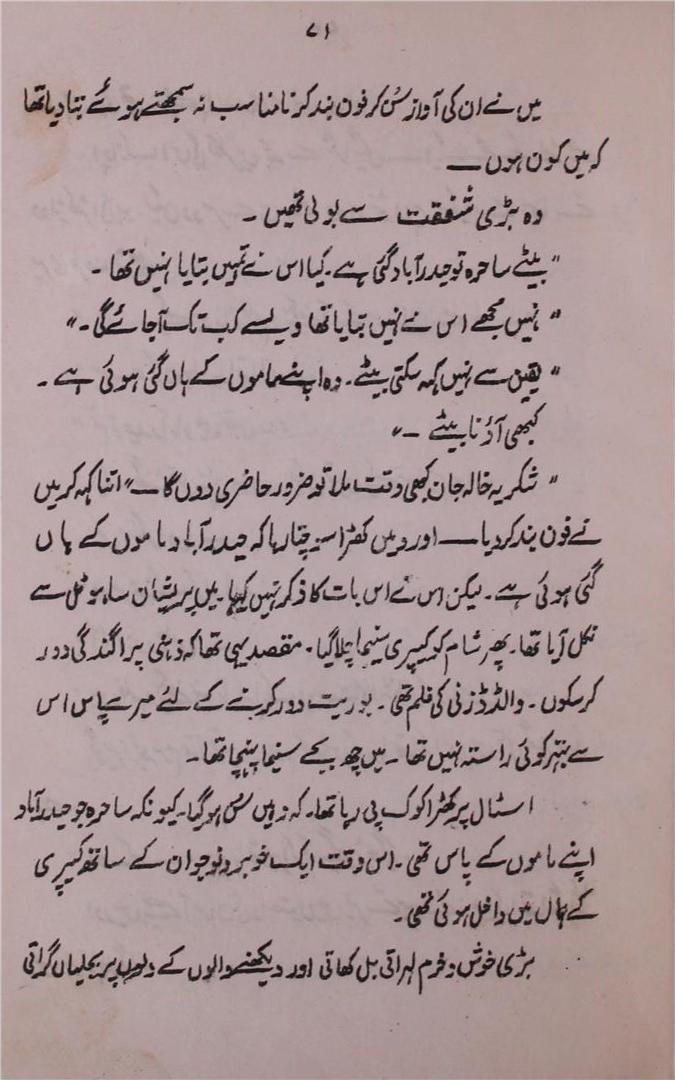 ۷۱
میں نے ان کی آواز سُن کر فون بند کرنا مناسب نہ سمجھتے ہوئے بتا دیا تھا
کہ میں کون ہوں ۔۔۔
وہ بڑی شفقت سے بولی تھیں ۔
" بیٹے ساحرہ تو حیدر آباد گئی ہے ۔ کیا اس نے تمہیں بتایا نہیں تھا ۔
" نہیں مجھے اس نے نہیں بتایا تھا ویسے کب تک آجائے گی ۔"
" یقین سے نہیں کہہ سکتی بیٹے ۔ وہ اپنے ماموں کے ہاں گئی ہوئی ہے ۔
کبھی آؤ نا بیٹے ۔"
" شکریہ خالہ جان کبھی وقت ملا تو ضرور حاضری دوں گا ۔۔۔" اتنا کہہ کر میں
نے فون بند کر دیا ۔۔۔ اور وہیں کھڑا سوچتا رہا کہ حیدر آباد ماموں کے ہاں
گئی ہوئی ہے ۔ لیکن اس نے اس بات کا ذکر نہیں کیا ۔ میں پریشان سا ہوٹل سے
نکل آیا تھا ۔ پھر شام کو کیپری سینما چلا گیا ۔ مقصد یہی تھا کہ ذہنی پراگندگی دور
کر سکوں ۔ والڈ ڈزنی کی فلم تھی ۔ بوریت دور کرنے کے لئے میرے پاس اس
سے بہتر کوئی راستہ نہیں تھا ۔ میں چھ بجے سنیما پہنچا تھا ۔
اسٹال پر کھڑا کوک پی رہا تھا ۔ کہ وہیں سُن ہو گیا ۔ کیونکہ ساحرہ جو حیدر آباد
اپنے ماموں کے پاس تھی ۔ اس وقت ایک خوبرو نوجوان کے ساتھ کیپری
کے ہال میں داخل ہوئی تھی ۔
بڑی خوش و خرم لہراتی بل کھاتی اور دیکھنے والوں کے دلوں پر بجلیاں گراتی